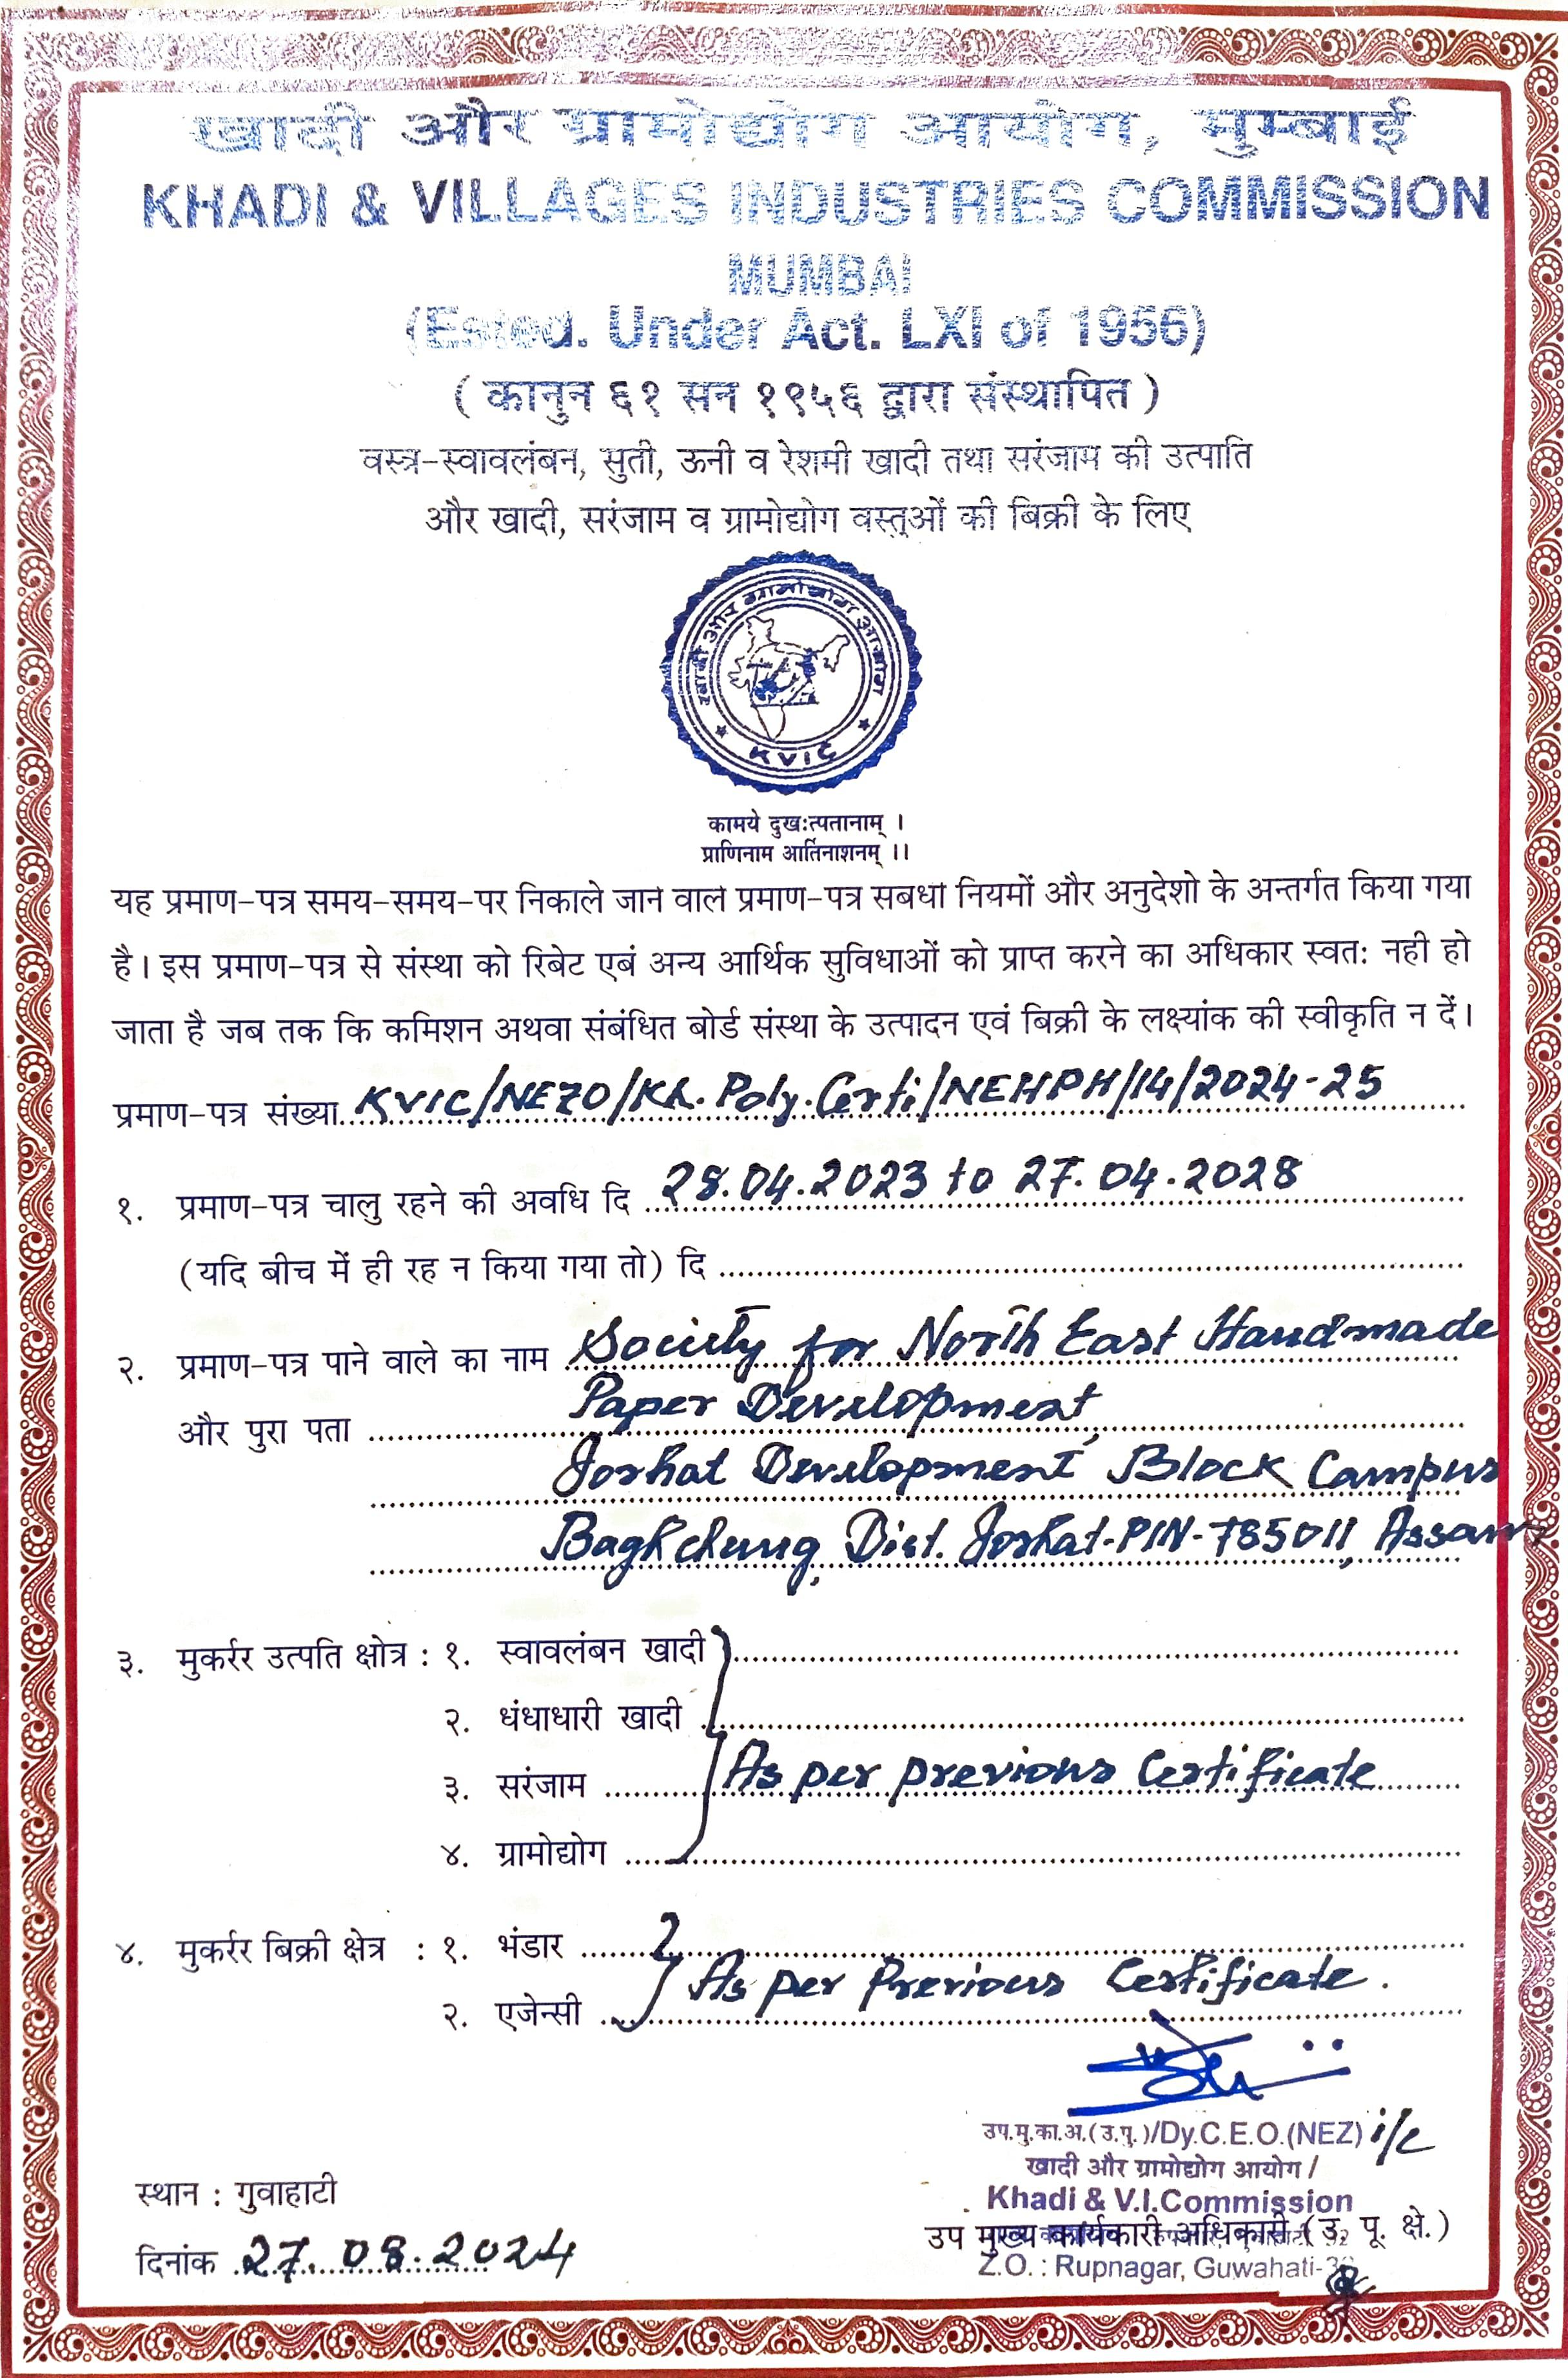 खादी और ग्रामोद्योग आयोग, मुम्बाई
KHADI & VILLAGES INDUSTRIES COMMISSION
MUMBAI
(Ested. Under Act. LXI of 1956)
( कानुन ६१ सन १९५६ द्वारा संस्थापित )
वस्त्र-स्वावलंबन, सुती, ऊनी व रेशमी खादी तथा सरंजाम की उत्पाति
और खादी, सरंजाम व ग्रामोद्योग वस्तुओं की बिक्री के लिए
खादी और ग्रामोद्योग आयोग
KVIC
कामये दुखःत्पतानाम् ।
प्राणिनाम आर्तिनाशनम् ।।
यह प्रमाण-पत्र समय-समय-पर निकाले जान वाल प्रमाण-पत्र सबधा नियमों और अनुदेशो के अन्तर्गत किया गया
है। इस प्रमाण-पत्र से संस्था को रिबेट एबं अन्य आर्थिक सुविधाओं को प्राप्त करने का अधिकार स्वतः नही हो
जाता है जब तक कि कमिशन अथवा संबंधित बोर्ड संस्था के उत्पादन एवं बिक्री के लक्ष्यांक की स्वीकृति न दें।
प्रमाण-पत्र संख्या KVIC/NEZO/Kh. Poly. Certi/NEHPH/14/2024-25
१. प्रमाण-पत्र चालु रहने की अवधि दि 28.04.2023 to 27.04.2028
(यदि बीच में ही रह न किया गया तो) दि
२. प्रमाण-पत्र पाने वाले का नाम Society for North East Handmade
और पुरा पता Paper Development,
Jorhat Development Block Campus
Baghchung, Dist. Jorhat-PIN-785011, Assam
३. मुकर्रर उत्पति क्षोत्र : १. स्वावलंबन खादी
२. धंधाधारी खादी
३. सरंजाम As per previous Certificate
४. ग्रामोद्योग
४. मुकर्रर बिक्री क्षेत्र : १. भंडार
As per Previous Certificate.
२. एजेन्सी
उप.मु.का.अ.(उ.पु.)/Dy.C.E.O.(NEZ) i/c
खादी और ग्रामोद्योग आयोग /
Khadi & V.I.Commission
उप मुख्य कार्यकारी अधिकारी (उ. पू. क्षे.)
Z.O. : Rupnagar, Guwahati-
स्थान : गुवाहाटी
दिनांक 27.08.2024